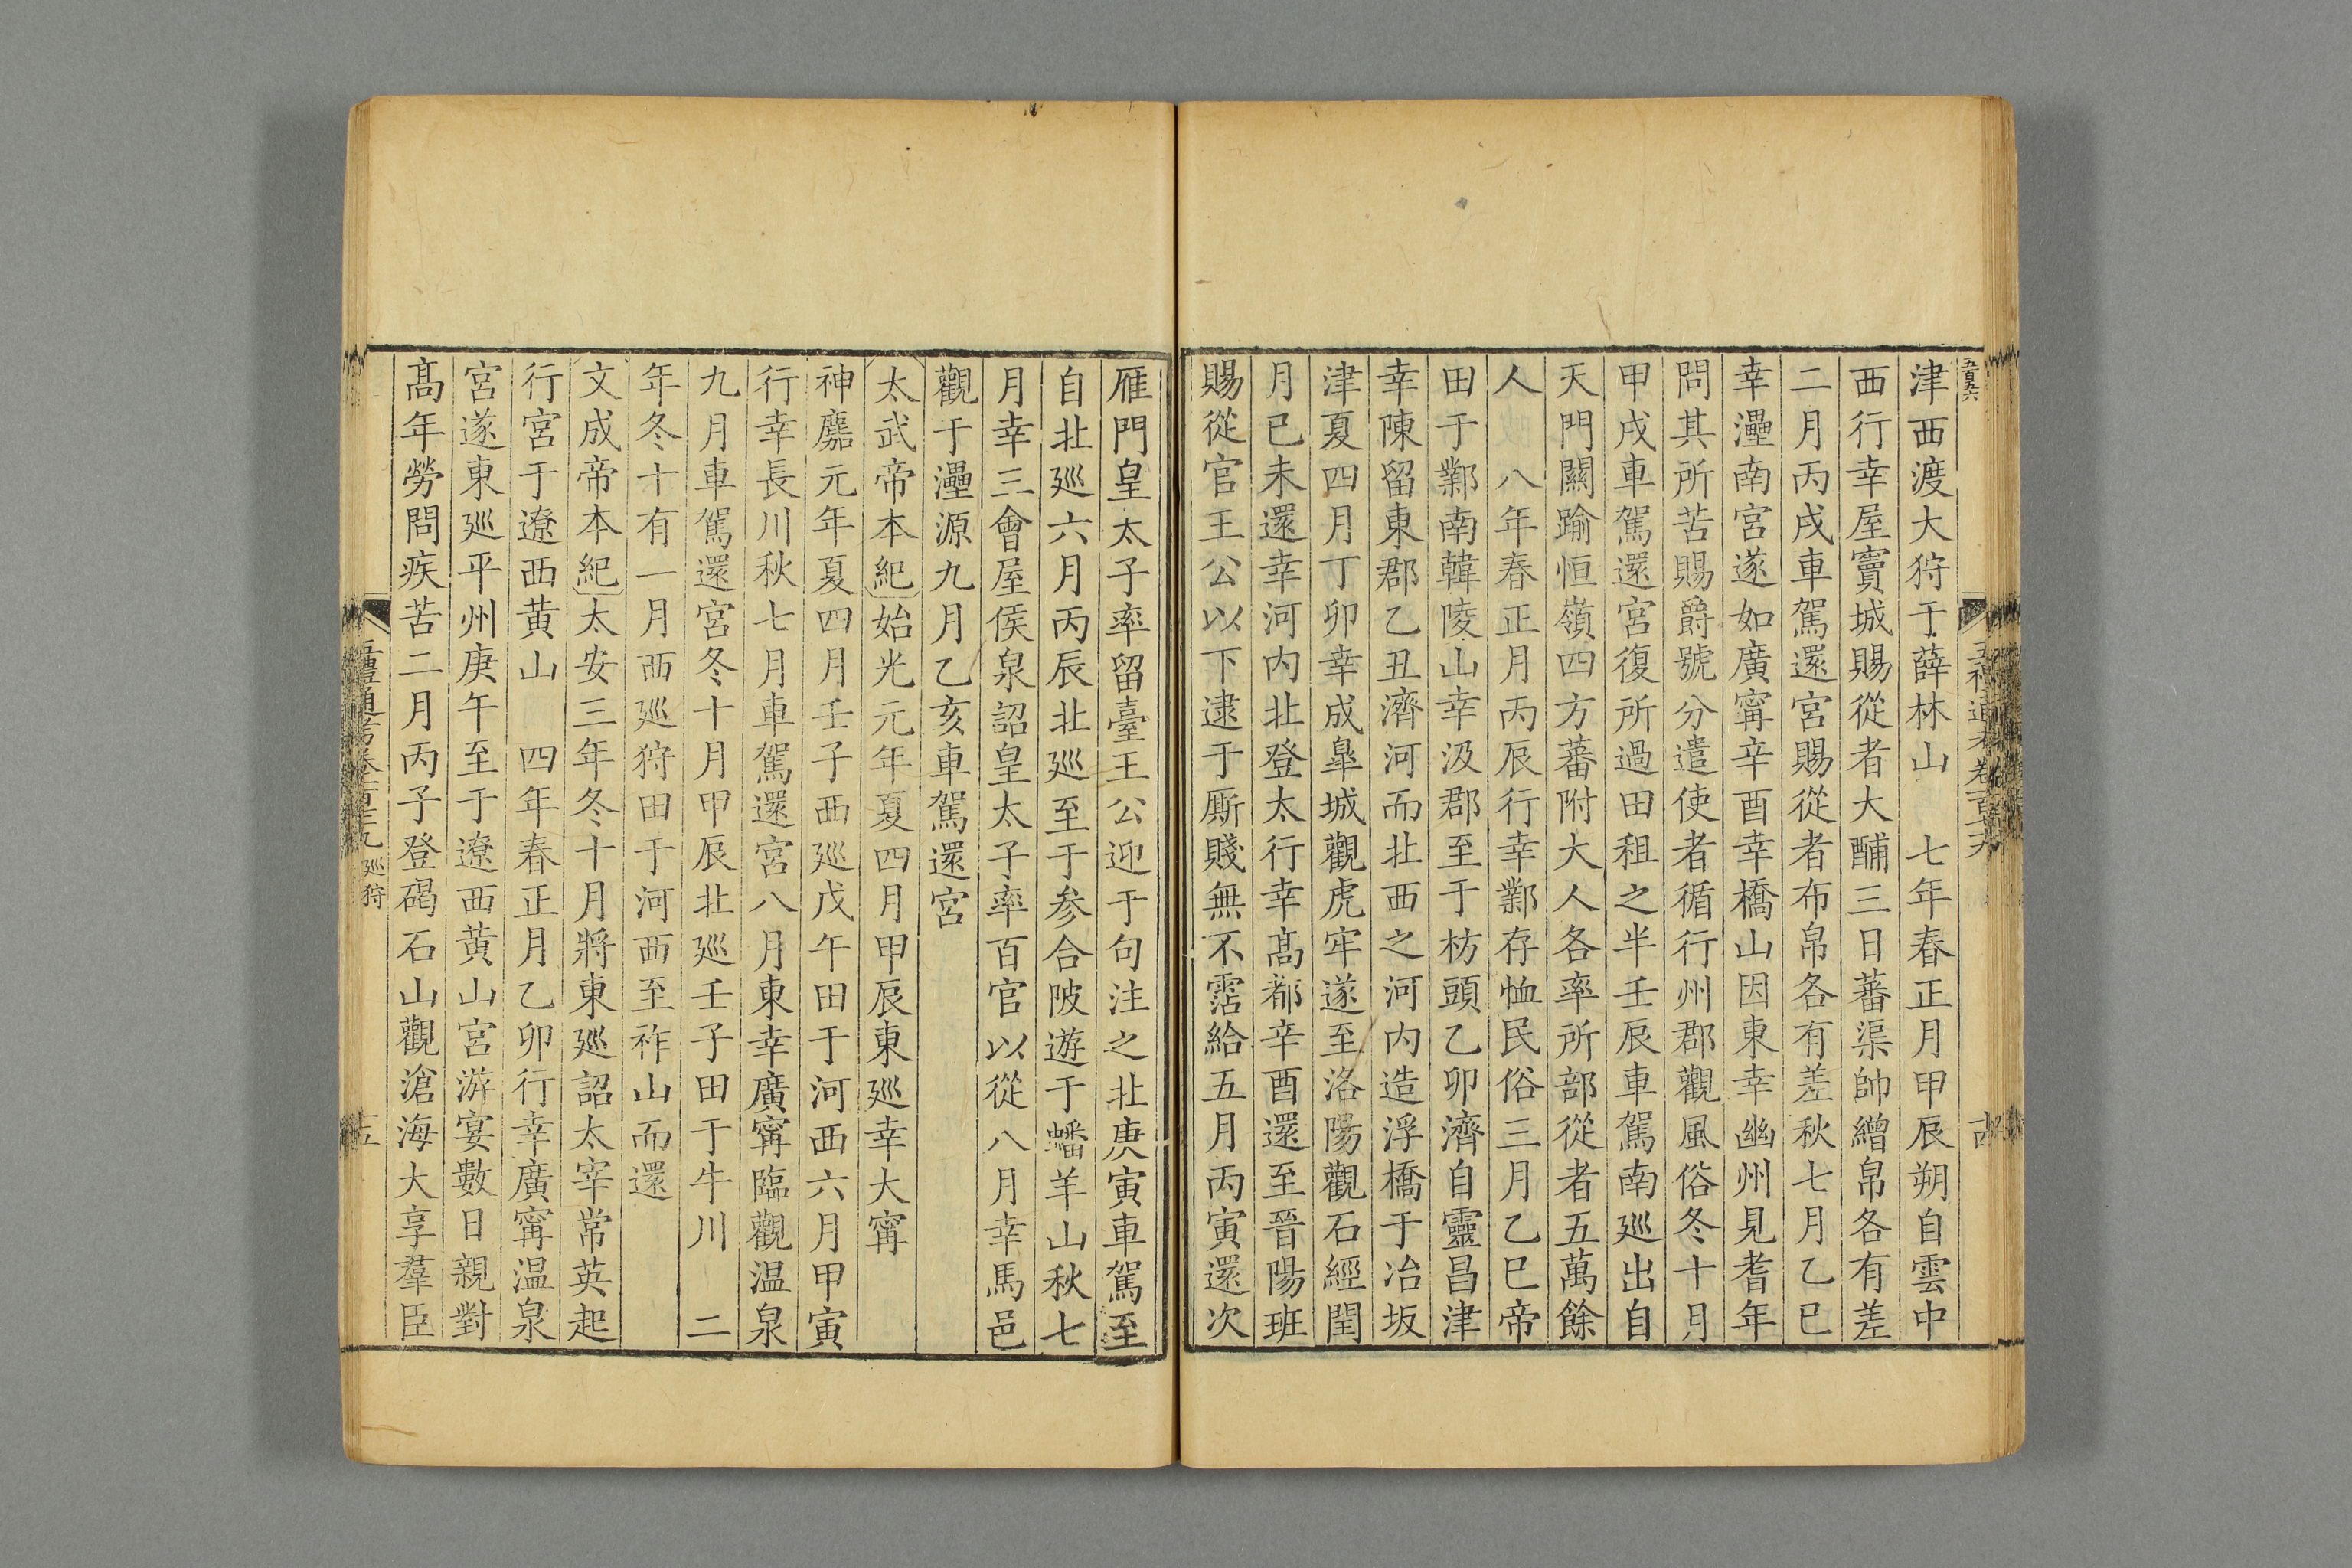 五百九六
津西渡大狩于薛林山　七年春正月甲辰朔自雲中
西行幸屋竇城賜從者大酺三日蕃渠帥繒帛各有差
二月丙戌車駕還宮賜從者布帛各有差秋七月乙巳
幸㶟南宮遂如廣甯辛酉幸橋山因東幸幽州見耆年
問其所苦賜爵號分遣使者循行州郡觀風俗冬十月
甲戌車駕還宮復所過田租之半壬辰車駕南廵出自
天門關踰恒嶺四方蕃附大人各率所部從者五萬餘
人　八年春正月丙辰行幸鄴存恤民俗三月乙巳帝
田于鄴南韓陵山幸汲郡至于枋頭乙卯濟自靈昌津
幸陳留東郡乙丑濟河而北西之河内造浮橋于冶坂
津夏四月丁卯幸成臯城觀虎牢遂至洛陽觀石經閏
月已未還幸河内北登太行幸髙都辛酉還至晉陽班
賜從官王公以下逮于厮賤無不霑給五月丙寅還次
雁門皇太子率留臺王公迎于句注之北庚寅車駕至
自北廵六月丙辰北廵至于参合陂遊于蟠羊山秋七
月幸三會屋侯泉詔皇太子率百官以從八月幸馬邑
觀于㶟源九月乙亥車駕還宮
太武帝本紀始光元年夏四月甲辰東廵幸大甯
神䴥元年夏四月壬子西廵戊午田于河西六月甲寅
行幸長川秋七月車駕還宮八月東幸廣甯臨觀温泉
九月車駕還宮冬十月甲辰北廵壬子田于牛川　二
年冬十有一月西廵狩田于河西至祚山而還
文成帝本紀太安三年冬十月將東廵詔太宰常英起
行宮于遼西黄山　四年春正月乙卯行幸廣甯温泉
宮遂東廵平州庚午至于遼西黄山宮游宴數日親對
髙年勞問疾苦二月丙子登碣石山觀滄海大享羣臣
廵狩